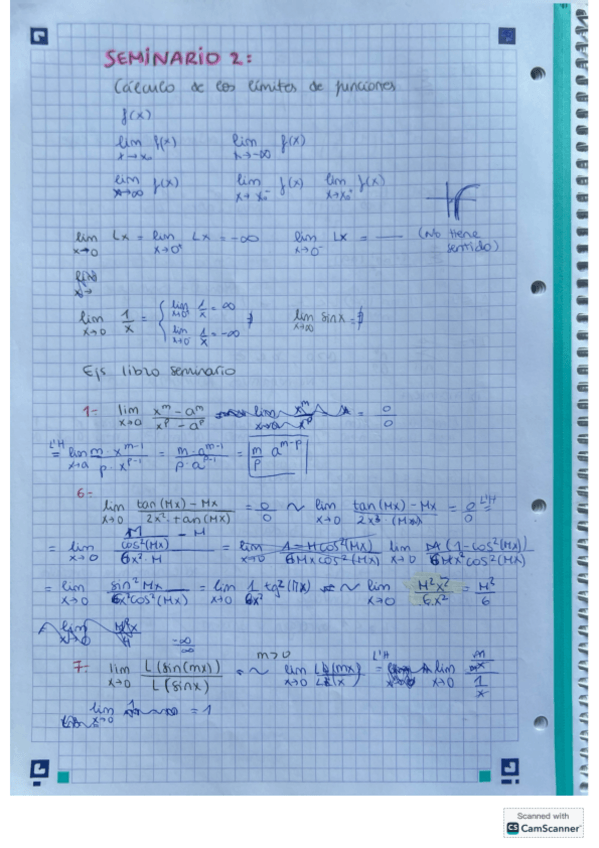 SEMINARIO 2:
Cálculo de los límites de funciones
f(x)
lim x→x₀ f(x)   lim x→-∞ f(x)
lim x→∞ f(x)   lim x→x₀⁻ f(x)   lim x→x₀⁺ f(x)
lim x→0 Lx = lim x→0⁺ Lx = -∞   lim x→0⁻ Lx = — (No tiene sentido)
lim x→0 1/x = { lim x→0⁺ 1/x = ∞
lim x→0⁻ 1/x = -∞ ∄   lim x→∞ sinx = ∄
Ejs libro seminario
1- lim x→0 (x^m - a^m)/(x^p - a^p) = 0/0
L'H = lim x→a (m·x^(m-1))/(p·x^(p-1)) = (m·a^(m-1))/(p·a^(p-1)) = m/p a^(m-p)
6- lim x→0 (tan(Mx) - Mx)/(2x²·tan(Mx)) = 0/0 ~ lim x→0 (tan(Mx) - Mx)/(2x²·(Mx)) = 0/0 L'H =
= lim x→0 (M/cos²(Mx) - M)/(6x²·M) = lim x→0 M(1-cos²(Mx))/(6Mx²cos²(Mx))
= lim x→0 sin²Mx/(6x²cos²(Mx)) = lim x→0 1/(6x²) tg²(Mx) = ~ lim x→0 M²x²/(6x²) = M²/6
7- lim x→0 L(sin(mx))/L(sinx) = -∞/∞ ~ m>0 lim x→0 L(mx)/L(x) L'H = lim x→0 (m/mx)/(1/x)
lim x→0 = 1
Scanned with
CS CamScanner